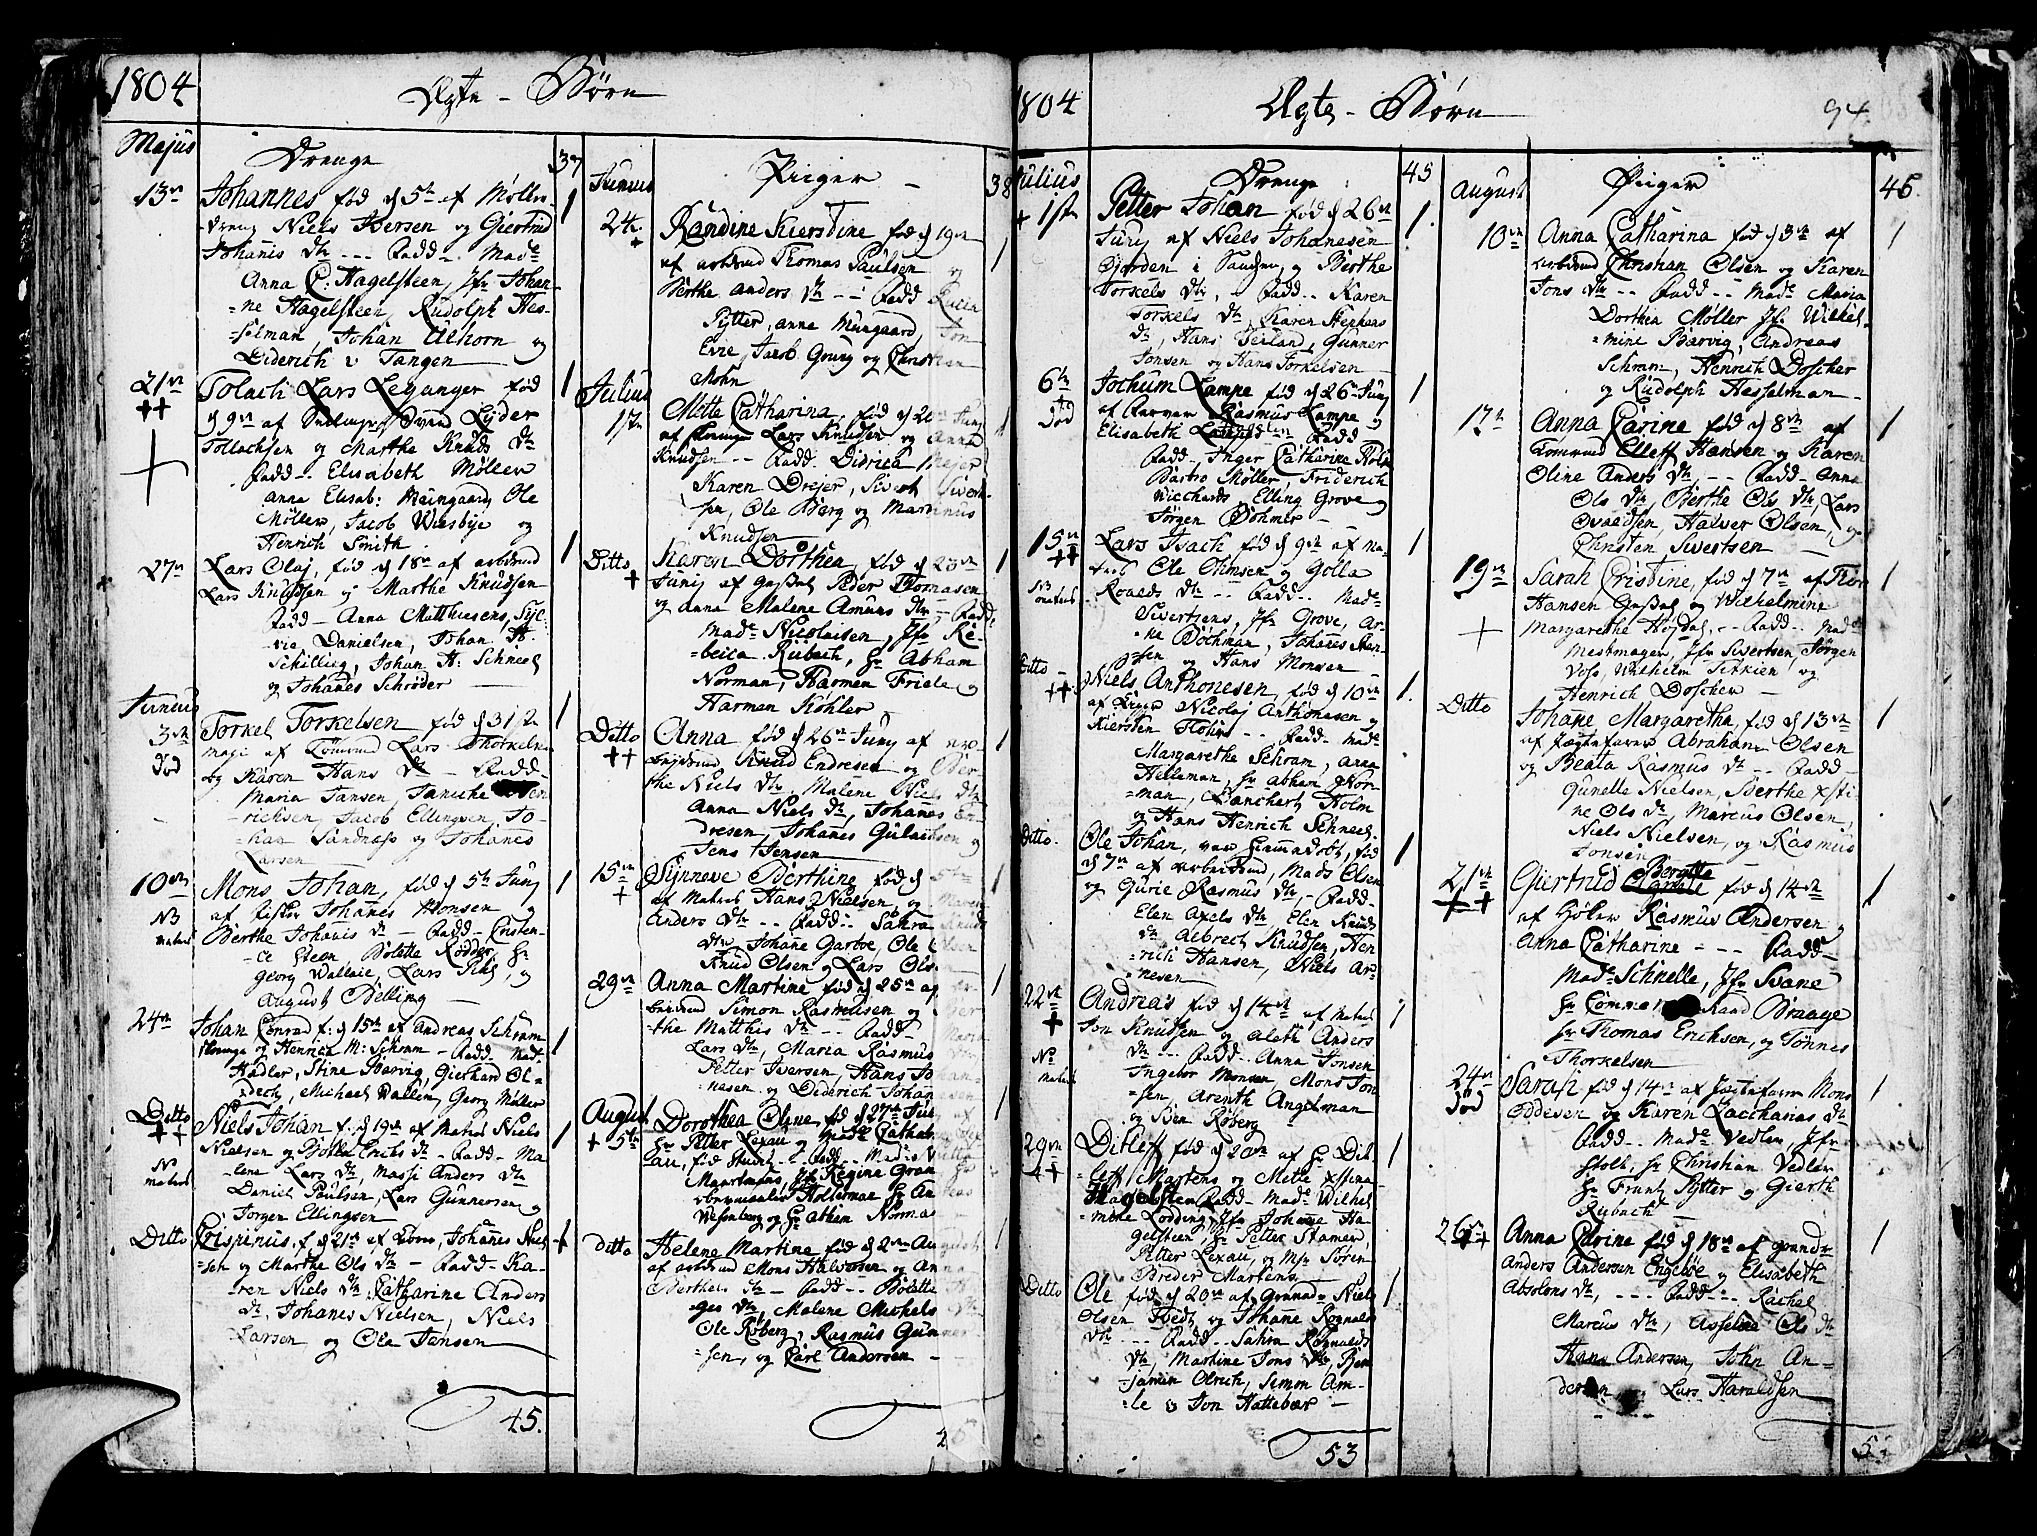 1804
Ægte - Børn
Majus
Drenge
37
13de
Johannes fød d 5te af Møller-
-dreng Niels Iversen og Giertrud
Johanis dtr --- Fadd- Made
Anna C: Hagelsteen, Jfr Johan-
-ne Hagelsteen, Rudolph Hes-
-selman, Johan Alhorn og
Diderich v Tangen
1
21de
++
Tolach Lars Leganger fød
d 9de af Svend Lyder
Tollachsen og Marthe Knuds dtr
Fadd-- Elisabeth Møller
Anna Elisab: Mungaard, Ole
Møller, Jacob Wiesbye og
Henrich Smith
1
27de
Lars Olaj, fød d 18de af arbdmd
Lars Knudsen og Marthe Knudsen
Fadd- Anna Matthiesens, Syl-
-via Danielsen, Johan H:
Schilling, Johan H: Schneel
og Johanes Schrøder
1
Junius
3de
død
Torkel Torkelsen fød d 31te
maji af Tømmd Lars Thorkelsen
og Karen Hans dtr - Fadd-
Maria Jansen, Janiche Hen-
richsen, Jacob Ellingsen, Jo-
-han Sandnæss og Johanes
Larsen
1
10de
NB
matros
Mons Johan, fød d 5te Junj
af fisker Johanes Monsen og
Berthe Johanis dtr - Fadd- Cristen-
-ce Steen, Bolette Rødder, Hr
Georg Wallace, Lars Pihl, og
August Belling
1
24de
Johan Conrad f: d 15de af Andreas Schram
og Henrica M: Schram - Fadd- Mad-
Hadler, Stine Barvig, Gierhard Ol-
-dech, Michael Wallin, Georg Møller
1
Ditto
++
No
matros
Niels Johan f: d 19de af Matros Niels
Nielsen og Bolla Erichs dtr - Fadd- Ma-
-lene Lars dtr, Massi Anders dtr
Daniel Paulsen, Lars Gunnersen og
Jørgen Ellingsen
1
Ditto
Crispinus f d 21de af Johanes Niel-
sen og Marthe Ols dtr - Fadd- Ka-
-ren Niels dtr Catharine Anders
dtr, Johanes Nielsen, Niels
Larsen og Ole Jansen
+
45.
Junius
Piiger
38
24de
+
Randine Kierstine fød d 19de
af arbdmd Thomas Paulsen og
Berthe Anders dtr -- Fadd
Pytter, Anna Mungaard, Jon
Evie, Jacob Gruuj og Christian
Mohn
1
Julius
1ste
Mette Catharina, fød d 20de Junj
af Lars Knudsen og Anna
Knudsen -- Fadd- Didrica Mejer
Karen Drejer, Sivert Sivert-
sen, Ole Berg og Martinus
Knudsen
1
Ditto
+
Karen Dorthea, fød d 23de
Junij af Peder Thomasen
og Anna Malene Amuns dtr - Fadd:
Made Nicolaisen, Jfr Re-
-becca Rubach, Hr Abham
Norman, Harmen Friele og
Harmen Køhler
1
Ditto
++
Anna fød d 26de Junj af ar-
bejdsmd Knud Endresen og Ber-
the Niels dtr, Malene Niels dtr
Anna Niels dtr, Johanes En-
dresen, Johanes Gulachsen og
Jens Jensen
1
15de
+
Synneve Berthine fød d 5te
af Matros Hans Nielsen, og Maren
Anders dtr -- Fadd:- Sahra Knuds
dtr Johane Garbve, Ole Olsen
Knud Olsen og Lars Olsen
1
29de
Anna Martine fød d 25de af ar-
beidsmd Simon Rasmusen og Ber-
the Matthis dtr -- Fadd-
Lars dtr, Maria Rasmus
Petter Iversen, Hans Johan-
nesen og Diderich Johannesen
1
August
+ 5te
Dorothea Oline fød d 27de Junj af
Hr Petter Lexau og Made Catharina Lex-
au, fød Stub -- Fadd- Madm
Maartmans, Jfr Regine Gran Hr
Holterman Hr Andreas
Wesenberg og Hr Athim Norman
1
ditto
Helene Martine fød d 2de August
af arbdmd Mons Halvorsen og Anna
Berthes dtr - Fadd-- Bolette
-ges dtr, Malene Michels dtr
Ole Røberg, Rasmus Gunner-
-sen, og Carl Andersen -
1
1804
Ægte - Børn
94.
Julius
Drenge
45
+ 1ste
Petter Johan fød d 26de
Junj af Niels Johanesen
Gjorden i Sandven, og Berthe
Torkels dtr, - Fadd-- Karen
Torkels dtr, Karen Stephens
dtr, Hans Teiland, Gunner
Jonsen og Hans Torkelsen
1.
6te
+
død
Jochum Lampe fød d 26de Junj
af Farver Rasmus Lampe og
Elisabeth Fadd
Fadd-- Inger Catharine Holm
Barbro Møller, Friderich
Wicchards, Elling Grove og
Jørgen Bøhmer -
1
15de
++
NB
matros
Lars Isach fød d 9de af Ma-
tros Ole Omsen og Golla
Roalds dtr -- Fadd-- Made
Sivertsens, Jfr Grove, Ar-
ne Bøchman, Johanes Sten-
sen og Hans Monsen
1
Ditto
++
Niels Anthonesen, fød d 10de
af Nicolaj Anthonesen og
Kiersten Fløhrs -- Fadd-- Made
Margarethe Schram, Anna
Helleman, Hr Abham Nor-
-man, Danchert Holm
og Hans Henrich Schneel
1.
Ditto.
Ole Johan, var hiemmedøbt, fød
d 7de af arbeidsmd, Mads Olsen
og Gurie Rasmus dtr,- Fadd-
Elen Axels dtr, Elen Knuds
dtr Albrect Knudsen, Hen
rich Hansen, Niels Ar-
nesen
1
22de
+
No
matros
Andreas fød d 14de af Matros
Jon Knudsen og Aleth Anders
dtr --- Fadd-- Anna Jonsen
Ingebor Monsen, Mons Jon
sen, Arenth Angelman
og Ben Røberg
1
29de
++
Ditleff fød d 20de af Hr Dit-
leff Martens og Mette Xstina
Hagelsten Fadd-- Made Wilhel
mine Lodding, Jfr Johanne Ha-
gelsteen, Hr Petter Stamer
Petter Lexau, og Msr Søren
Breder Martens
1
Ditto
Ole fød d 20de af Granadr Niels
Olsen Bedt og Johane Rognalds
dtr --- Fadd-- Sahra Rognalds
dtr, Martine Jons dtr, Ben
jamin Olrich, Simon Am-
-le & Jon Hattebær -
1.
53
August
Piiger
46
10de
Anna Catharina fød d 3de af
arbdmd Christian Olsen og Karen
Jons dtr -- Fadd -- Made Maria
Dorthea Møller Jfr Wilhel-
-mine Barvig, Andreas
Schram, Henrich Døscher
og Rudolph Hesselman -
1
17de
Anna Carine fød d 8de af
Tømmd Elleff Hansen og Karen
Oline Anders dtr -- Fadd- Anna
Ols dtr, Berthe Ols dtr, Lars
Ovaldsen, Halver Olsen, og
Christen Sivertsen
1
19de
+
Sarah Cristine, fød d 7de af Thor
Hansen og Wilhelmine
Margarethe Hojdal, -- Fadd-- Made
Mestmager, Jfr Sivertsen, Jørgen
Voss, Wilhelm Terkien og
Henrich Døscher
1
Ditto
Johane Margaretha, fød d 13de
af Jægtefarer Abraham Olsen
og Beata Rasmus dtr -- Fadd-
Gunelle Nielsen, Berthe Xsti
ne Ols dtr, Marcus Olsen,
Niels Nielsen, og Rasmus
Jonsen
1
21de
++
Giertrud Beratte fød d 14de
af Høker Rasmus Andersen og
Anna Catharine --- Fadd-
Made Schnelle, Jfr Svane
Hr Rand Braage
Hr Thomas Ericksen, og Tønnes
Thorkelsen
1
24de
død
Sarah fød d 14de af Jægtefarer Mons
Oddesen og Karen Zaccharias dtr
Fadd-- Made Vedler, Jfr
Stolt, Hr Christian Vedler
Hr Frantz Pytter og Gierth
Rubach
1
26de
++
Anna Carine fød d 18de af Granadr
Anders Andersen Engelsve og Elisabeth
Absolons dtr, --- Fadd:- Rachel
Marcus dtr, Asseline Ols dtr
Hans Andersen, John An-
dersen og Lars Haraldsen
1